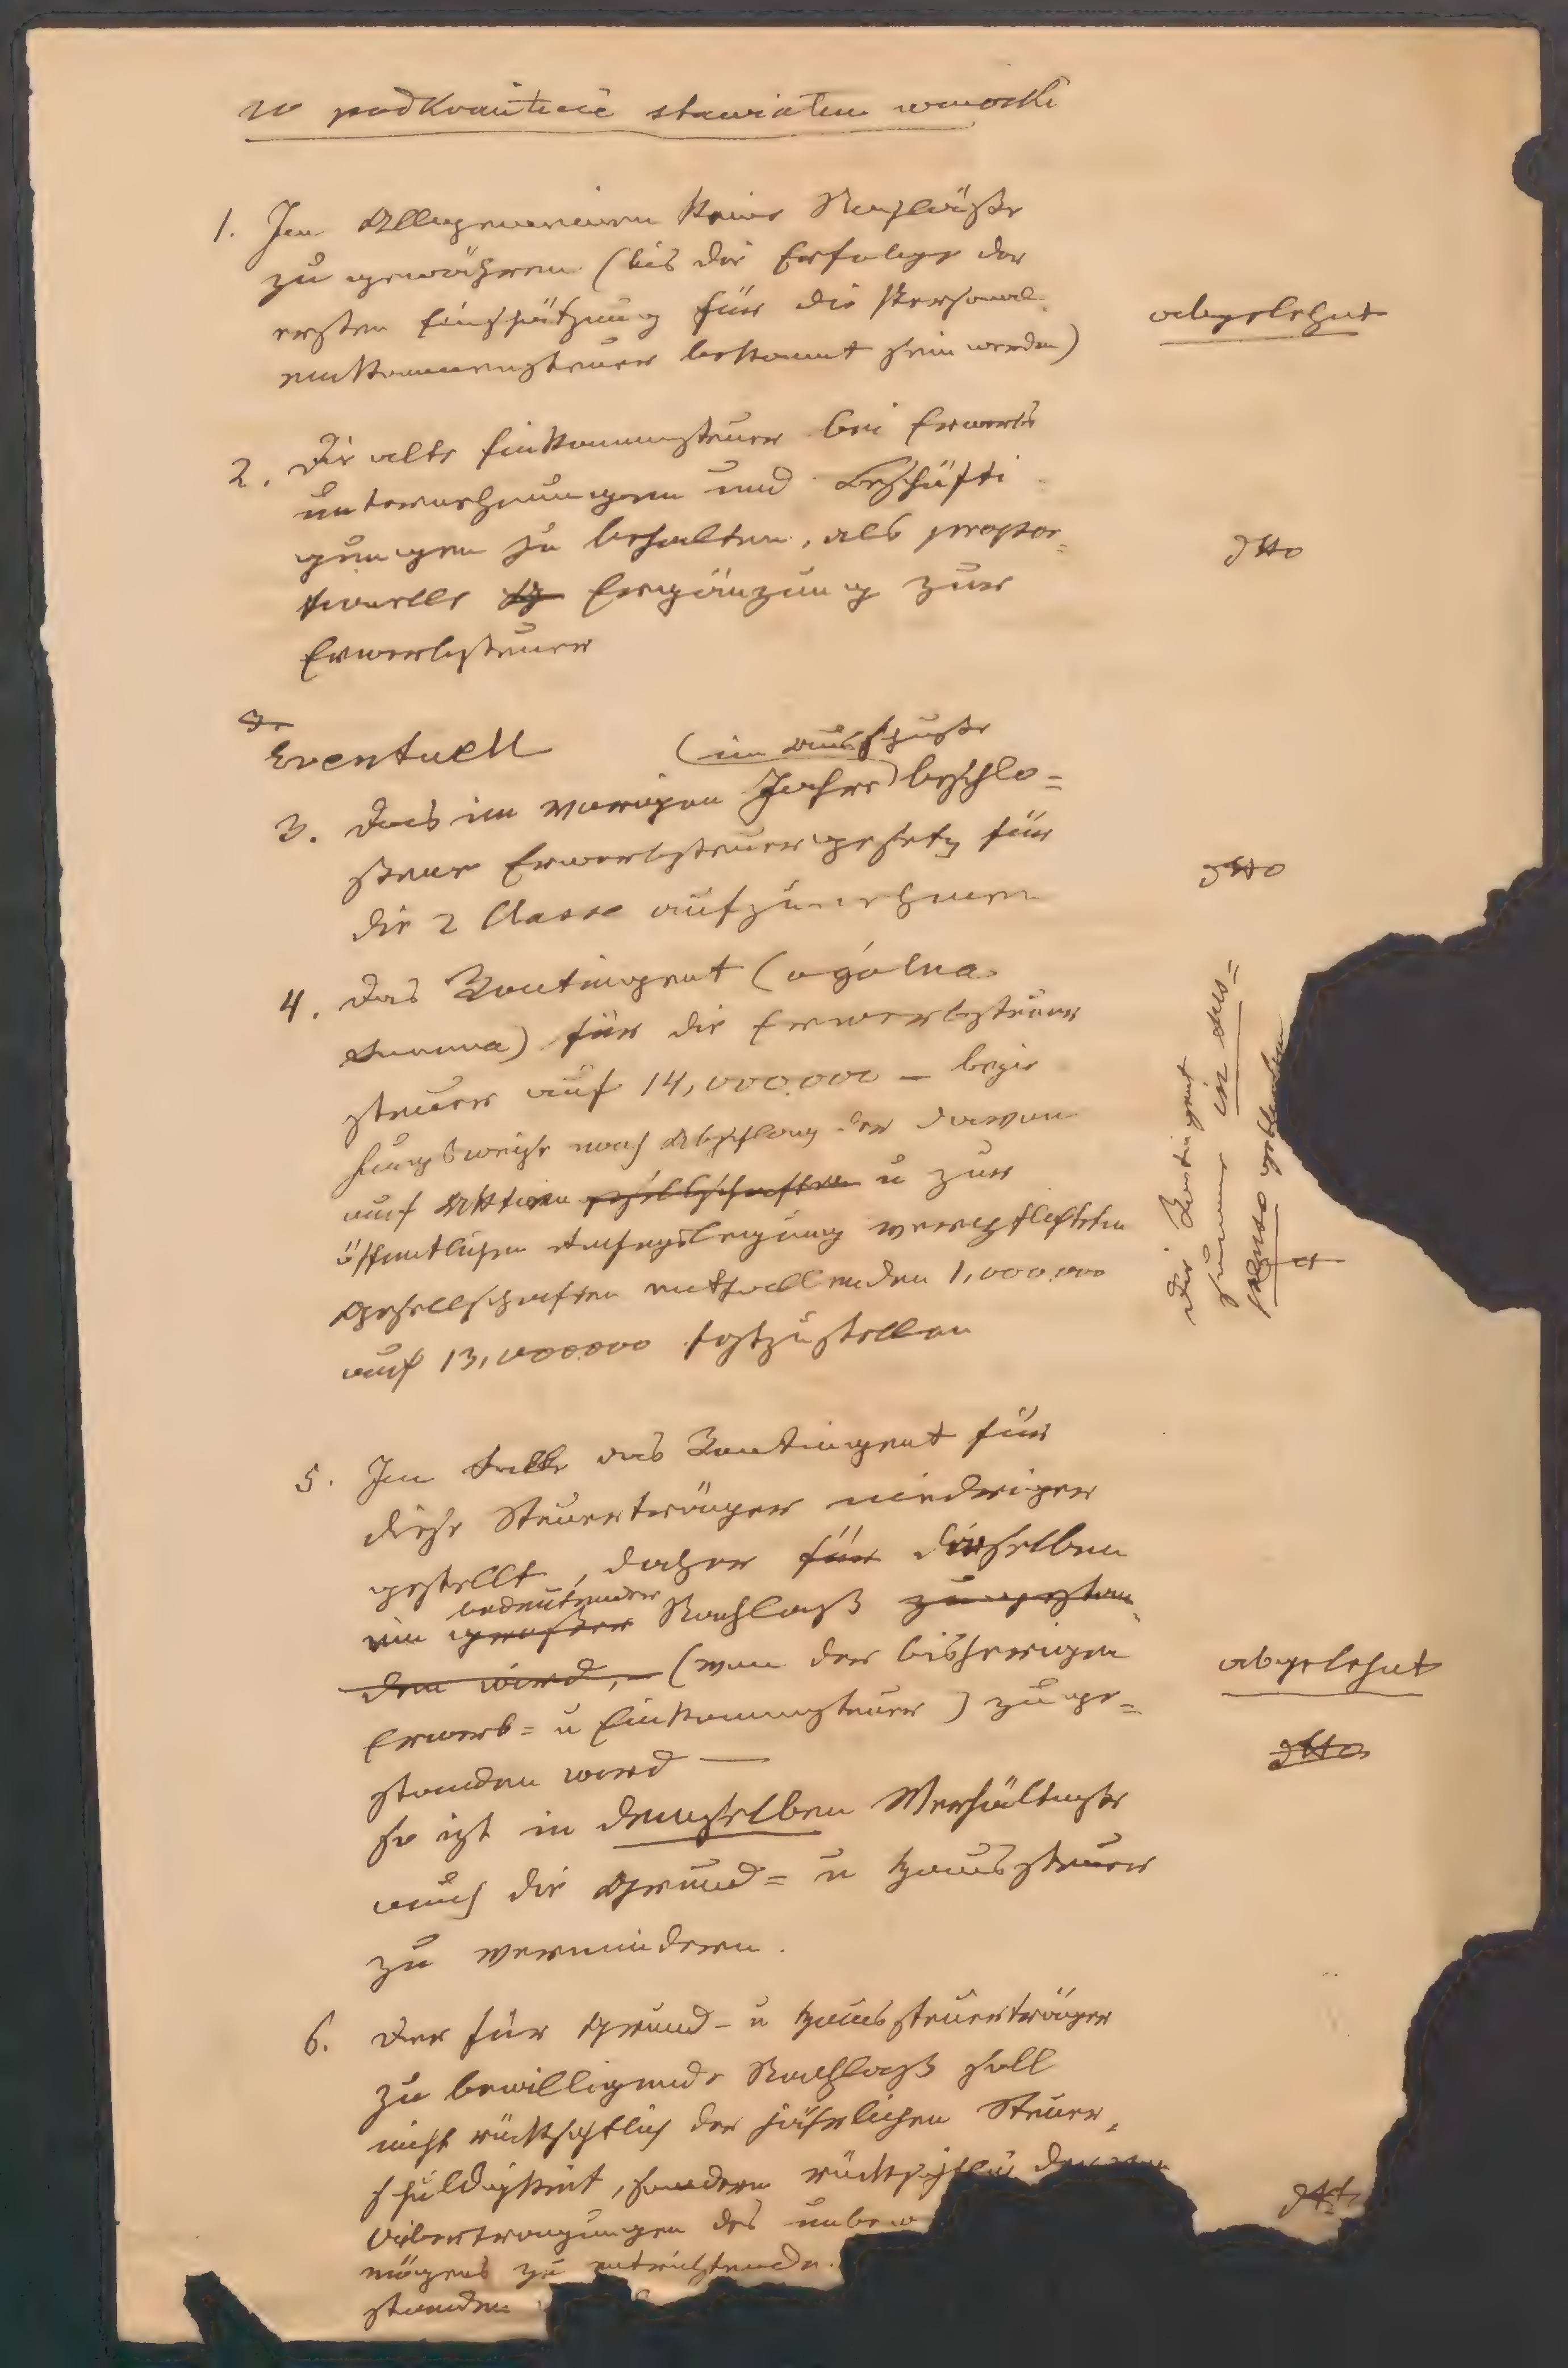 w podkomitecie stawiałem wnioski
1. Im Allgemeinen keine Nachläße
zu gewähren (bis die Erfolge der
ersten Einschätzung für die Personal-
einkommensteuer bekannt sein werden)
abgelehnt
2. Die alte Einkommensteuer bei Erwerbs
unternehmungen und Beschäfti
gungen zu behalten, als propor=
tionelle Ergänzung zur
Erwerbsteuer
dtto
Eventuell
(im Ausschuße
3. Das im vorigen Jahre) beschlo=
ßene Erwerbsteuergesetz für
die 2 Classe aufzunehmen
dtto
4. Das Kontingent (ogólna
summa) für die Erwerbsteuer
steuer auf 14,000.000 — bezie
hungsweise nach Abschlag der davon
auf Aktien gesellschaften u zur
öffentlichen Rechnungslegung verpflichteten
Gesellschaften entfallenden 1,000.000
auf 13,000000 festzustellen
Die Kontingent
summe in sus=
penso geblieben
5. Im Falle das Kontingent für
diese Steuerträger niedriger
gestellt, daher für dieselben
bedeutender
ein großer Nachlaß zu gestan-
den wird, — (von der bisherigen
Erwerb= u Einkommensteuer) zuge=
standen wird —
abgelehnt
dtto
so ist in demselben Verhältniße
auch die Grund= u Haussteuer
zu vermindern.
6. Der für Grund- u Haussteuerträger
zu bewilligende Nachlaß soll
nicht rücksichtlich der jährlichen Steuer
schuldigkeit, sondern rücksichtlich der von
Uibertragungen des unbew
mögens zu entrichtende
standen
dtto